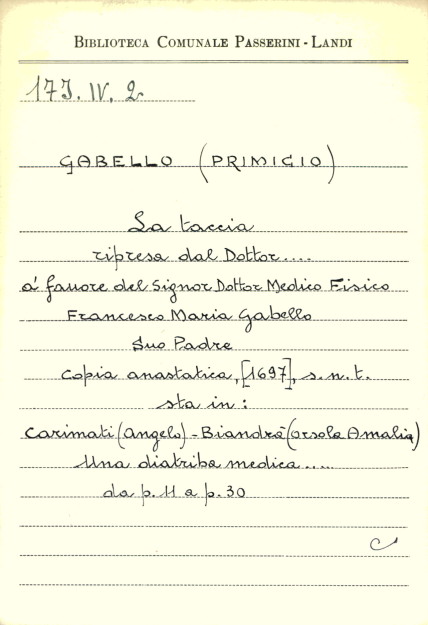 BIBLIOTECA COMUNALE PASSERINI - LANDI
17J. IV. 2
GABELLO (PRIMIGIO)
La taccia
ripresa dal Dottor....
a' favore del Signor Dottor Medico Fisico
Francesco Maria Gabello
Suo Padre
Copia anastatica, [1697], s. n. t.
sta in:
Carimati (Angelo) - Biandrà (Orsola Amalia)
Una diatriba medica.....
da p. 11 a p. 30
C